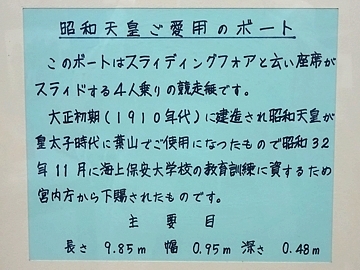 昭和天皇ご愛用のボート
このボートはスライディングフォアと云い座席が
スライドする4人乗りの競走艇です。
大正初期(1910年代)に建造され昭和天皇が
皇太子時代に葉山でご使用になったもので昭和32
年11月に海上保安大学校の教育訓練に資するため
宮内庁から下賜されたものです。
主要目
長さ 9.85m 幅 0.95m 深さ 0.48m